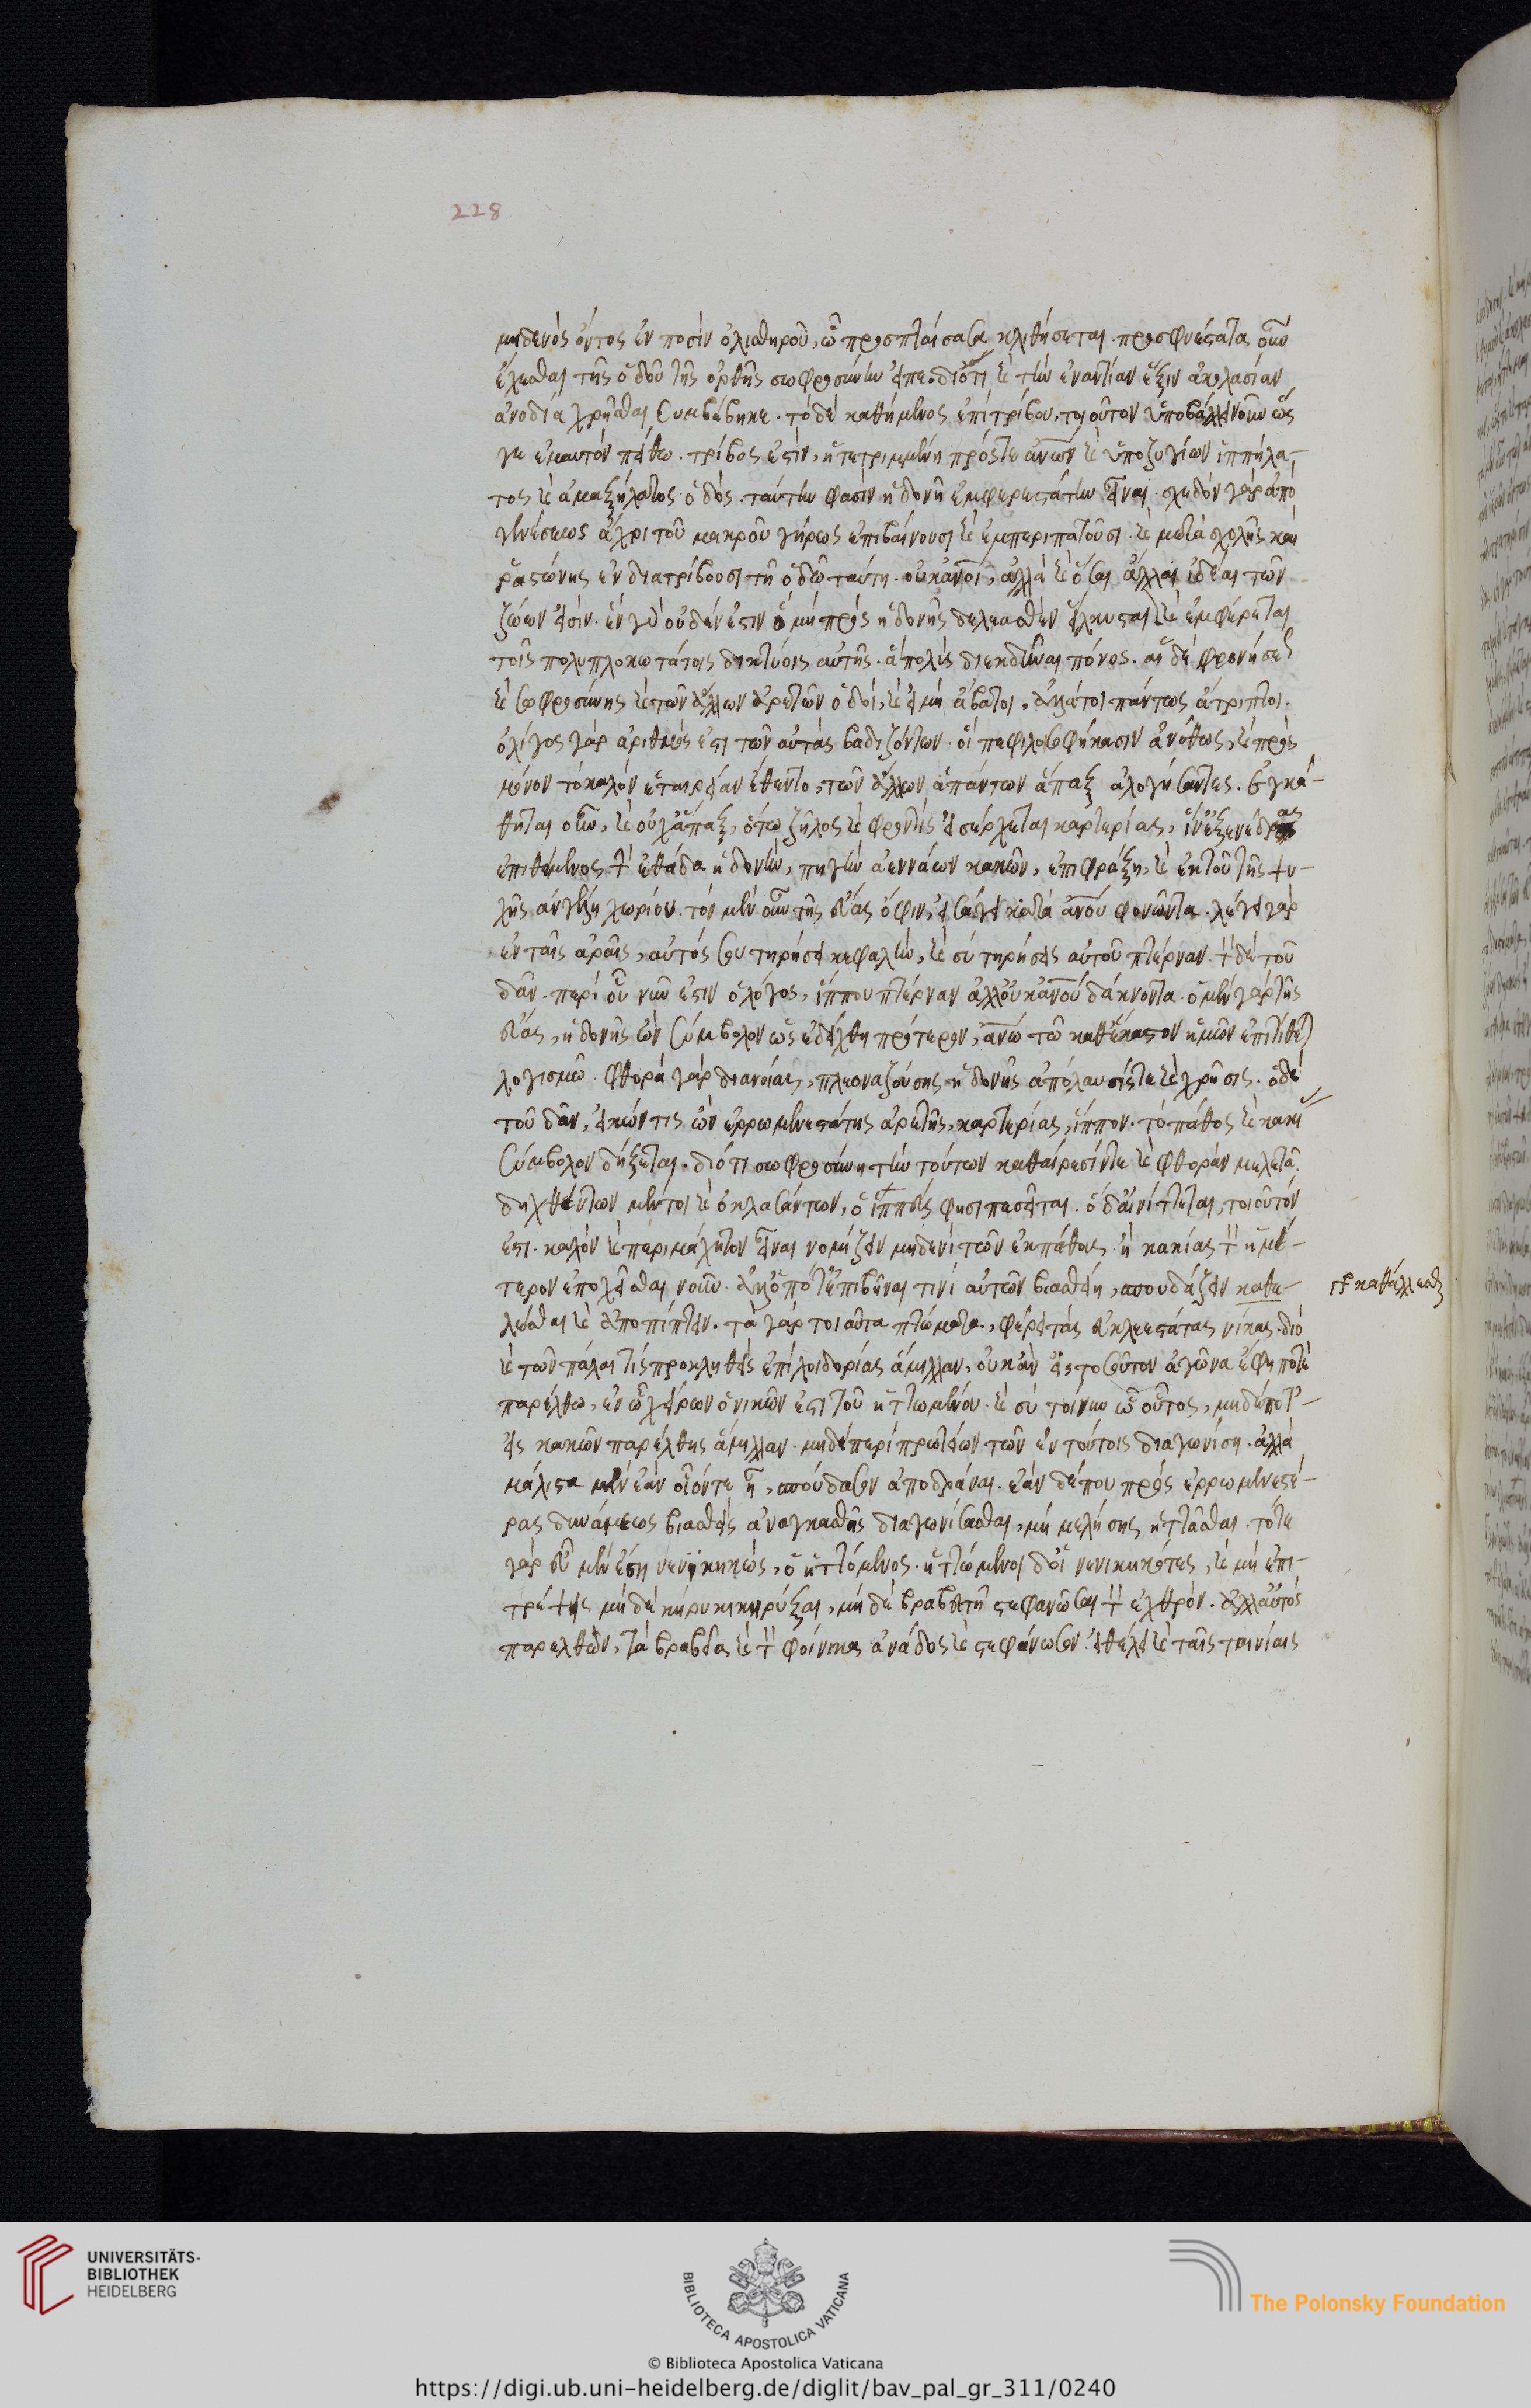 228
μηδενὸς ὄντος ἐν ποσὶν ὀλισθηροῦ, ᾧ προσπταίσασα κλιθήσεται. προσφυέστατα οὖν
ἔχεσθαι τῆς ὁδοῦ τῆς ὀρθῆς σωφροσύνην εἶπε. διότι καὶ τὴν ἐναντίαν ἕξιν ἀκολασίαν
ἀνοδία χρῆσθαι συμβέβηκε. τὸ δὲ καθήμενος ἐπὶ τρίβου, τοιοῦτον ὑποβάλλει νοῦν ὥς
γε ἐμαυτὸν πείθω. τρίβος ἐστὶν, ἡ τετριμμένη πρός τε ἀνων καὶ ὑποζυγίων ἱππήλα-
τος καὶ ἁμαξήλατος ὁδός. ταύτην φασὶν ἡδονῇ ἐμφερεστάτην εἶναι. σχεδὸν γὰρ ἀπὸ
γενέσεως ἄχρι τοῦ μακροῦ γήρως ἐπιβαίνουσι καὶ ἐμπεριπατοῦσι. καὶ μετὰ σχολῆς καὶ
ῥαστώνης ἐνδιατρίβουσι τῇ ὁδῷ ταύτῃ. οὐκ ἀνοι, ἀλλὰ καὶ ὅσαι ἄλλαι ἰδέαι τῶν
ζώων εἰσίν. ἓν γὰρ οὐδέν ἐστιν ὃ μὴ πρὸς ἡδονῆς δελεασθὲν εἵλκυσται καὶ ἐμφέρεται
τοῖς πολυπλοκωτάτοις δικτύοις αὐτῆς. ἃ πολὺς διεκδῦναι πόνος. αἱ δὲ φρονήσεως
καὶ σωφροσύνης καὶ τῶν ἄλλων ἀρετῶν ὁδοί, καὶ εἰ μὴ ἄβατοι, ἀλλά τοι πάντως ἄτριπτοι.
ὀλίγος γὰρ ἀριθμός ἐστι τῶν αὐτὰς βαδιζόντων. οἳ πεφιλοσοφήκασιν ἀνόθως, καὶ πρὸς
μόνον τὸ καλὸν ἑταιρείαν ἔθεντο, τῶν ἄλλων ἁπάντων ἅπαξ ἀλογήσαντες. ἐγκά-
θηται οὖν, καὶ οὐχ ἅπαξ, ὅτῳ ζῆλος καὶ φροντὶς εἰσέρχεται καρτερίας, ἵν' ἐξ ἐνέδρας
ἐπιθέμενος τὴν ἐθάδα ἡδονὴν, πηγὴν ἀεννάων κακῶν, ἐπιφράξῃ, καὶ ἐκ τοῦ τῆς ψυ-
χῆς ἀνέλῃ χωρίου. τὸν μὲν οὖν τῆς εὔας ὄφιν, εἰσάγει κατὰ ἀνου φονῶντα. λέγει γὰρ
ἐν ταῖς ἀραῖς, αὐτός σου τηρήσει κεφαλὴν, καὶ σὺ τηρήσεις αὐτοῦ πτέρναν. τὸν δὲ τοῦ
δὰν. περὶ οὗ νῦν ἐστιν ὁ λόγος, ἵππου πτέρναν ἀλλ' οὐκ ἀνου δάκνοντα. ὁ μὲν γὰρ τῆς
εὔας, ἡδονῆς ὢν σύμβολον ὡς ἐδείχθη πρότερον, ἀνω τῷ καθ' ἕκαστον ἡμῶν ἐπιτίθεται
λογισμῷ. φθορὰ γὰρ διανοίας, πλεοναζούσης ἡδονῆς ἀπόλαυσίς τε καὶ χρῆσις. ὁ δὲ
τοῦ δὰν, εἰκών τις ὢν ἐρρωμενεστάτης ἀρετῆς, καρτερίας, ἵππον. τὸ πάθος καὶ κακίας
σύμβολον δήξεται. διότι σωφροσύνη τὴν τούτων καθαίρεσίν τε καὶ φθορὰν μελετᾷ.
δηχθέντων μέντοι καὶ ὀκλασάντων, ὁ ἱππεύς φησι πεσεῖται. ὃ δ' αἰνίττεται, τοιοῦτόν
ἐστι. καλὸν καὶ περιμάχητον εἶναι νομίζειν μηδενὶ τῶν ἐκ πάθους ἢ κακίας τὸν ἡμέ-
τερον ἐποχεῖσθαι νοῦν. ἀλλ' ὁπότ' ἐπιβῆναί τινι αὐτῶν βιασθείη, σπουδάζειν καθε-
λέσθαι καὶ ἀποπίπτειν. τὰ γὰρ τοιαῦτα πτώματα, φέρει τὰς εὐκλεεστάτας νίκας. διὸ
καὶ τῶν πάλαι τὶς προκληθεὶς ἐπὶ λοιδορίας ἅμιλλαν, οὐκ ἂν εἰς τοσοῦτον ἀγῶνα ἔφη ποτὲ
παρέλθω, ἐν ᾧ χείρων ὁ νικῶν ἐστὶ τοῦ ἡττωμένου. καὶ σὺ τοίνυν ὦ οὗτος, μηδέποτ'
εἰς κακῶν παρέλθῃς ἅμιλλαν. μηδὲ περὶ πρωτείων τῶν ἐν τούτοις διαγωνίσῃ. ἀλλὰ
μάλιστα μὲν ἐὰν οἷόν τε ᾖ, σπούδασον ἀποδρᾶναι. ἐὰν δέ που πρὸς ἐρρωμενεστέ-
ρας δυνάμεως βιασθεὶς ἀναγκασθῇς διαγωνίσασθαι, μὴ μελήσῃς ἡττᾶσθαι. τότε
γὰρ εὖ μὲν ἔσῃ νενικηκὼς, ὁ ἡττώμενος. ἡττώμενοι δ' οἱ νενικηκότες, καὶ μὴ ἐπι-
τρέψῃς μήδὲ κήρυκι κηρύξαι, μήδὲ βραβευτῇ στεφανῶσαι τὸν ἐχθρόν. ἀλλ' αὐτὸς
παρελθὼν, τὰ βραβεῖα καὶ τὸν φοίνικα ἀνάδος καὶ στεφάνωσον εἰ θέλει καὶ ταῖς ταινίαις
καθάλλεσθαι